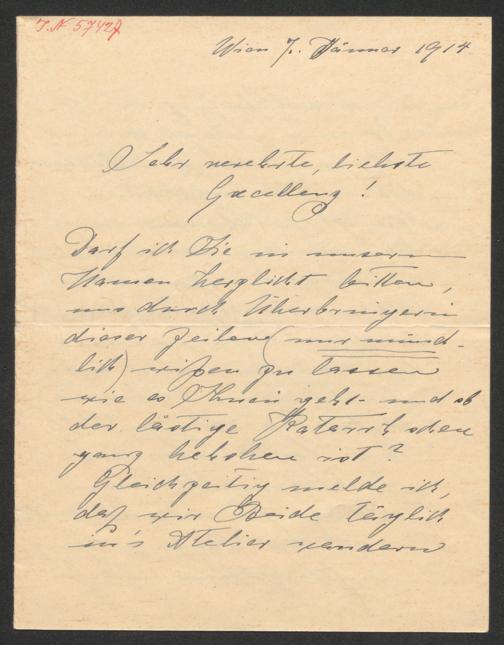 J.N. 57427
Wien 7. Jänner 1914
Sehr verehrte, liebste
Excellenz!
Darf ich Sie in unserem
Namen herzlichst bitten,
uns durch Überbringerin
dieser Zeilen (nur münd-
lich) wißen zu lassen
wie es Ihnen geht - und ob
der lästige Katarrh schon
ganz behoben ist?
Gleichzeitig melde ich,
daß wir Beide täglich
in's Atelier wandern